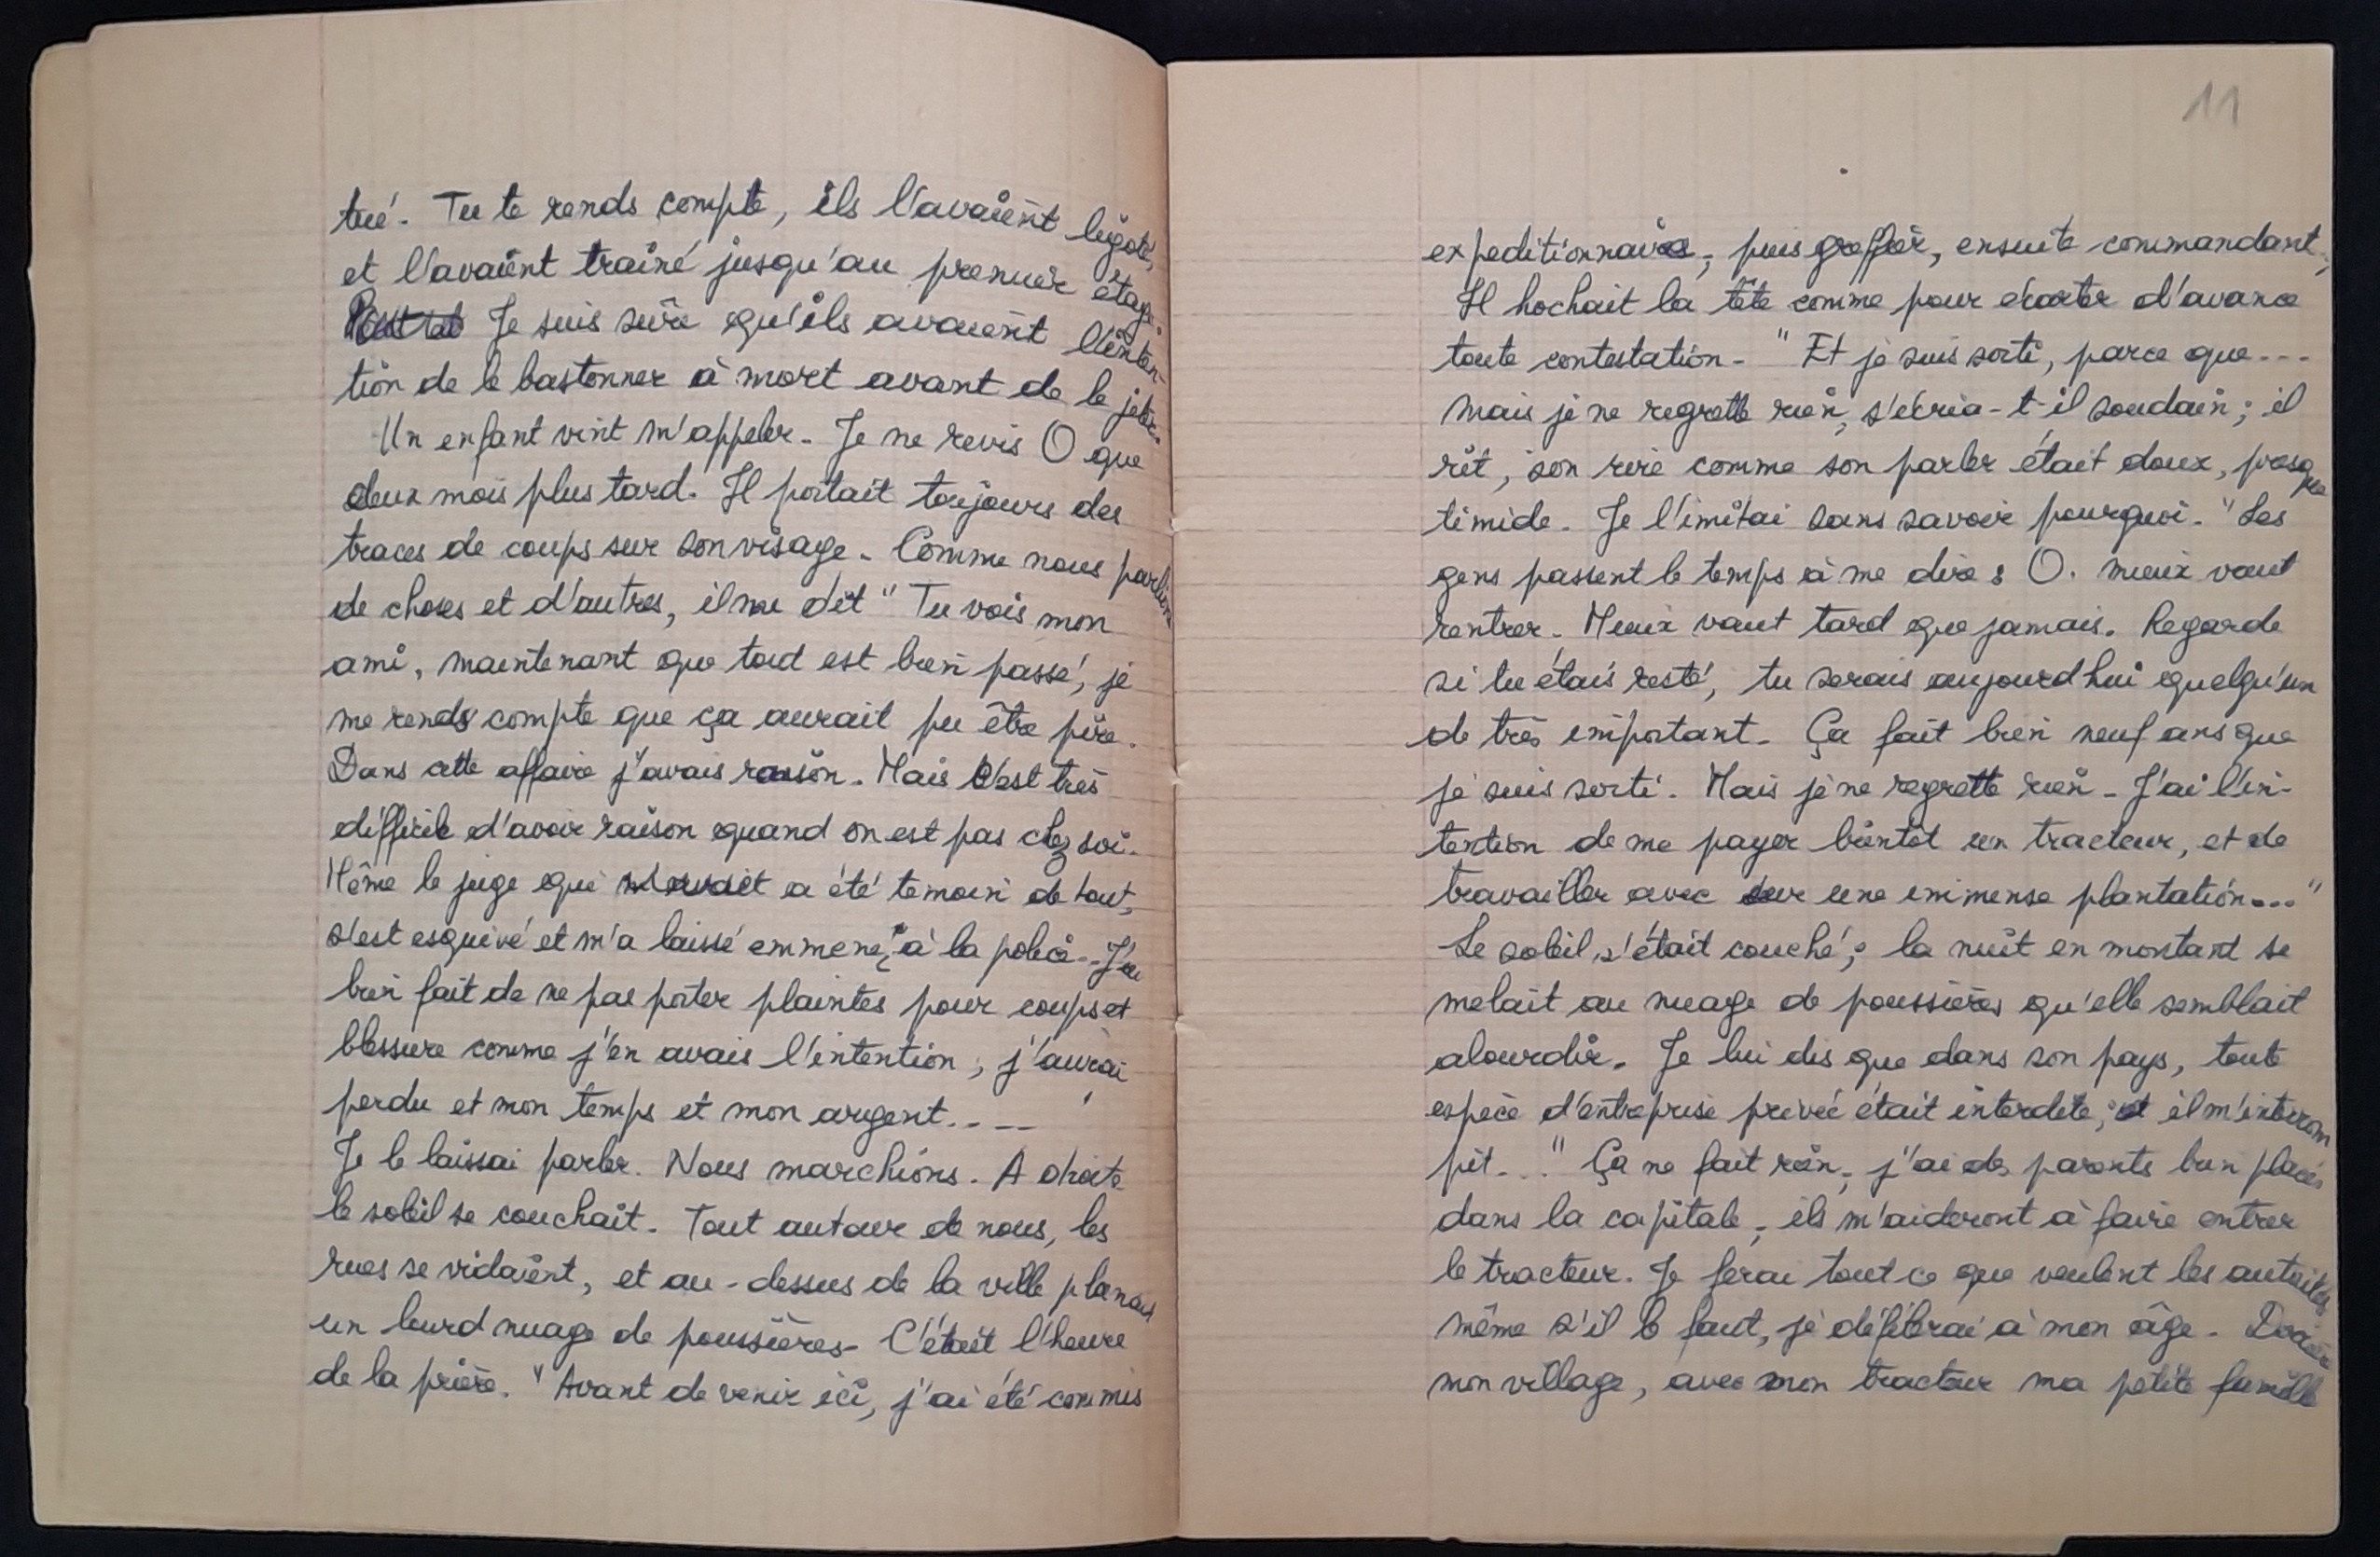 tué. Tu te rends compte, ils l'avaient ligoté,
et l'avaient trainé jusqu'au premier étage.
Je suis sûre qu'ils avaient l'inten-
tion de le bastonner à mort avant de le jeter.
Un enfant vint m'appeler. Je ne revis O que
deux mois plus tard. Il portait toujours des
traces de coups sur son visage. Comme nous parlions
de choses et d'autres, il me dit " Tu vois mon
ami, maintenant que tout est bien passé, je
me rends compte que ça aurait pu être pire.
Dans cette affaire j'avais raison. Mais c'est très
difficile d'avoir raison quand on est pas chez soi.
Même le juge qui a été temoin de tout,
s'est esquivé et m'a laissé emmener à la police... J'ai
bien fait de ne pas porter plaintes pour coups et
blessure comme j'en avais l'intention ; j'aurai
perdu et mon temps et mon argent....
Je le laissai parler. Nous marchions. A droite
le soleil se couchait. Tout autour de nous, les
rues se vidaient, et au-dessus de la ville planait
un lourd nuage de poussières. C'était l'heure
de la prière. " Avant de venir ici, j'ai été commis
11
expeditionnaire, puis greffier, ensuite commandant.,
Il hochait la tête comme pour écarter d'avance
toute contestation. " Et je suis sorti, parce que...
mais je ne regrette rien, s'écria-t-il soudain ; il
rit, son rire comme son parler était doux, presque
timide. Je l'imitai sans savoir pourquoi. " Les
gens passent le temps à me dire : O. mieux vaut
rentrer. Mieux vaut tard que jamais. Regarde
si tu étais resté, tu serais aujourd'hui quelqu'un
de très important. Ça fait bien neuf ans que
je suis sorti. Mais je ne regrette rien. J'ai l'in-
tention de me payer bientôt un tracteur, et de
travailler avec sur une immense plantation..."
Le soleil s'était couché ; la nuit en montant se
melait au nuage de poussières qu'elle semblait
alourdir. Je lui dis que dans son pays, toute
espèce d'entreprise privée était interdite ; et il m'interrom
pit... " Ça ne fait rien, j'ai des parents bien placés
dans la capitale, ils m'aideront à faire entrer
le tracteur. Je ferai tout ce que veulent les autorités
même s'il le faut, je défilerai à mon âge.
mon village, avec mon tracteur ma petite famille